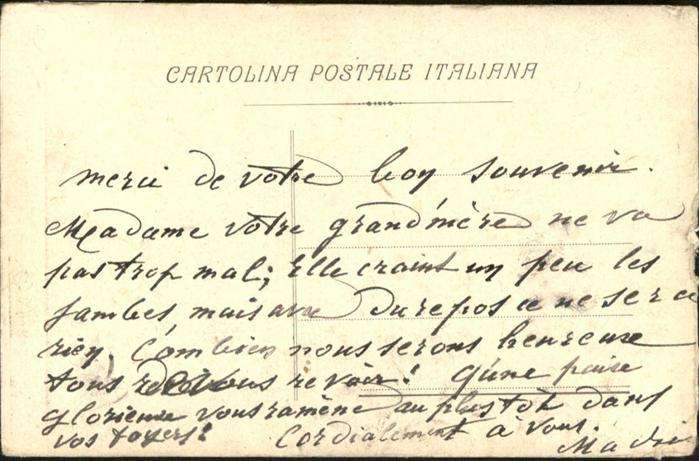 CARTOLINA POSTALE ITALIANA
merci de votre bon souvenir.
Madame votre grand'mère ne va
pas trop mal; Elle craint un peu les
jambes mais avec du repos ce ne sera
rien. Combien nous serons heureuse
tous de vous revoir! Qu'une paix
glorieuse vous ramène au plus tôt dans
vos foyers!
Cordialement à vous.